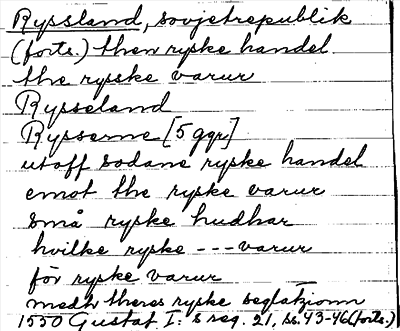 Ryssland, sovjetrepublik
(forts.) then ryske handel
the rysske varur
Rysseland
Rysserne [5 ggr]
utoff sodane ryske handel
emot the ryske varur
små ryske hudhar
hvilke ryske --- varur
för ryske varur
medh theres ryske
1550 Gustaf I: s reg. 21, ss. 43-46 (forts.)